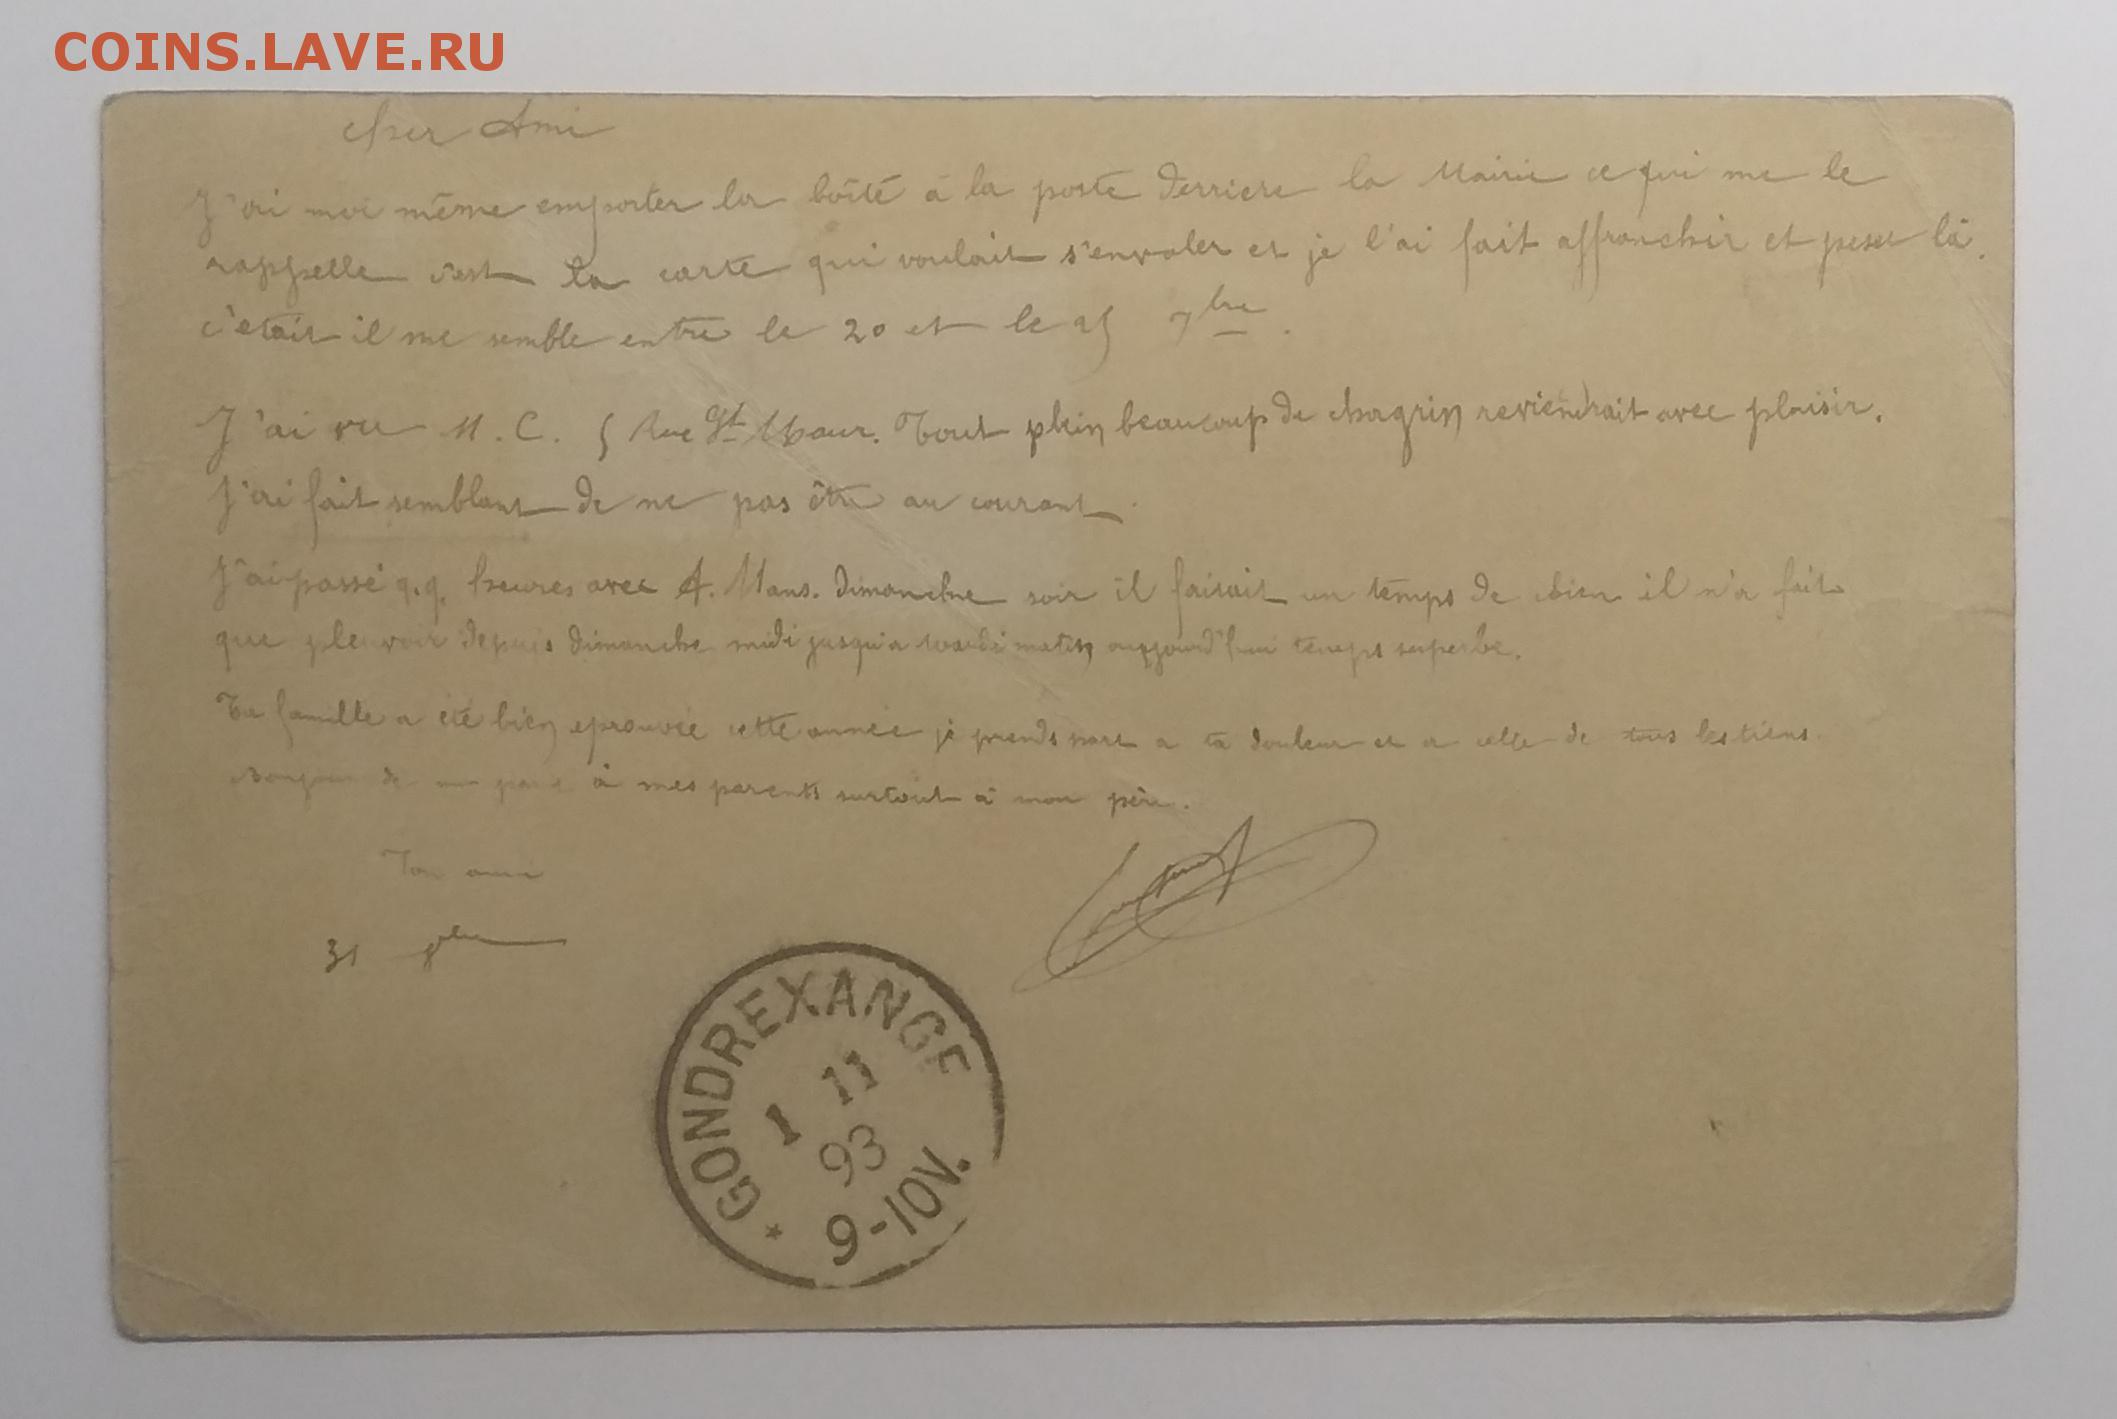 COINS.LAVE.RU
cher Ami
J'ai moi même emporter la boîté à la poste derriere la Mairie ce qui me le
rappelle c'est la carte qui voulait s'envoler et je l'ai fait affranchir et peser là.
c'etait il me semble entre le 20 et le 25 7bre.
J'ai vu M. C. 5 Rue St Maur. Tout plein beaucoup de chagrin reviendrait avec plaisir.
J'ai fait semblant de ne pas être au courant.
J'ai passé q.q. heures avec A. Mans. dimanche soir il faisait un temps de chien il n'a fait
que pleuvoir depuis dimanche midi jusqu'a mardi matin aujourd'hui temps superbe.
Ta famille a été bien eprouvée cette année je prends part a ta douleur et a celle de tous les tiens.
Bonjour de ma part à mes parents surtout à mon père.
Ton ami
31 8bre
GONDREXANGE
1 11
93
9-10V.